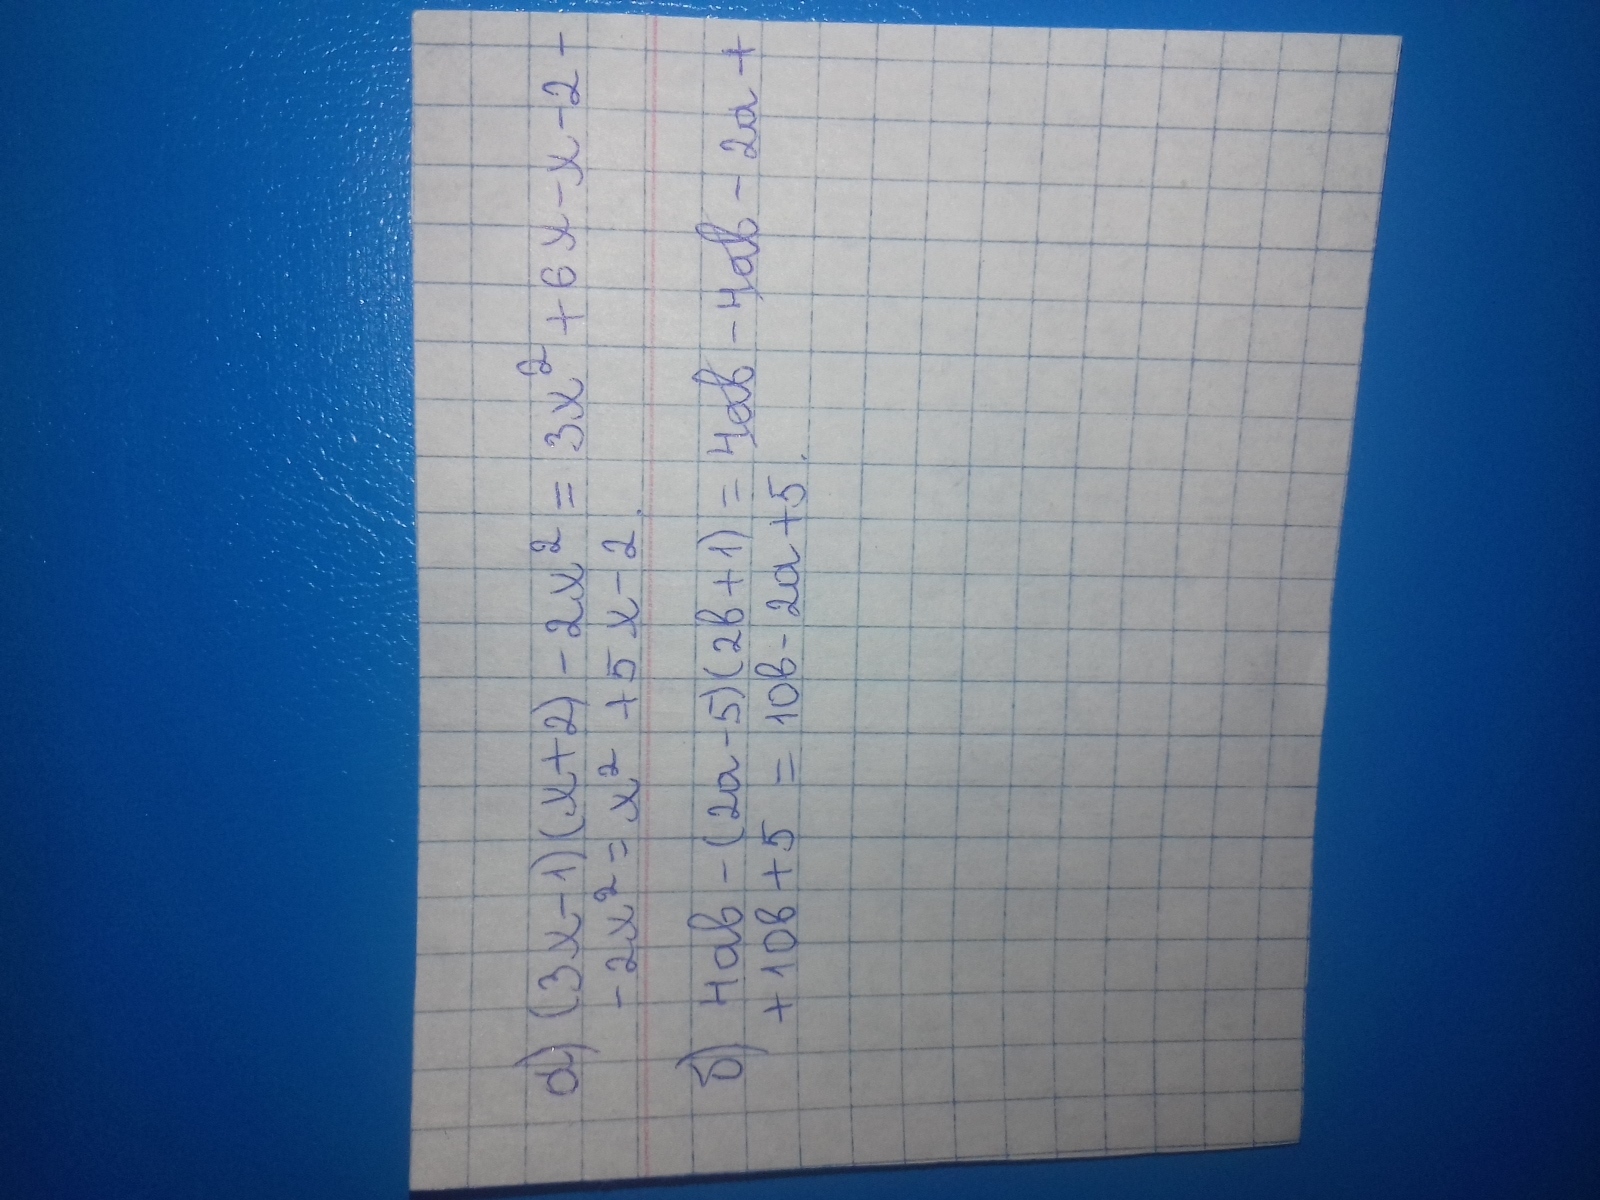 а) (3x-1)(x+2) - 2x² = 3x² + 6x - x - 2 -
- 2x² = x² + 5x - 2.
б) 4ab - (2a-5)(2b+1) = 4ab - 4ab - 2a +
+ 10b + 5 = 10b - 2a + 5.